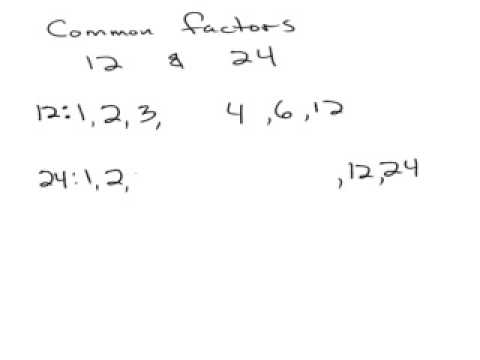 Common factors
12 & 24
12:1, 2, 3, 4 ,6 ,12
24:1, 2, ,12,24